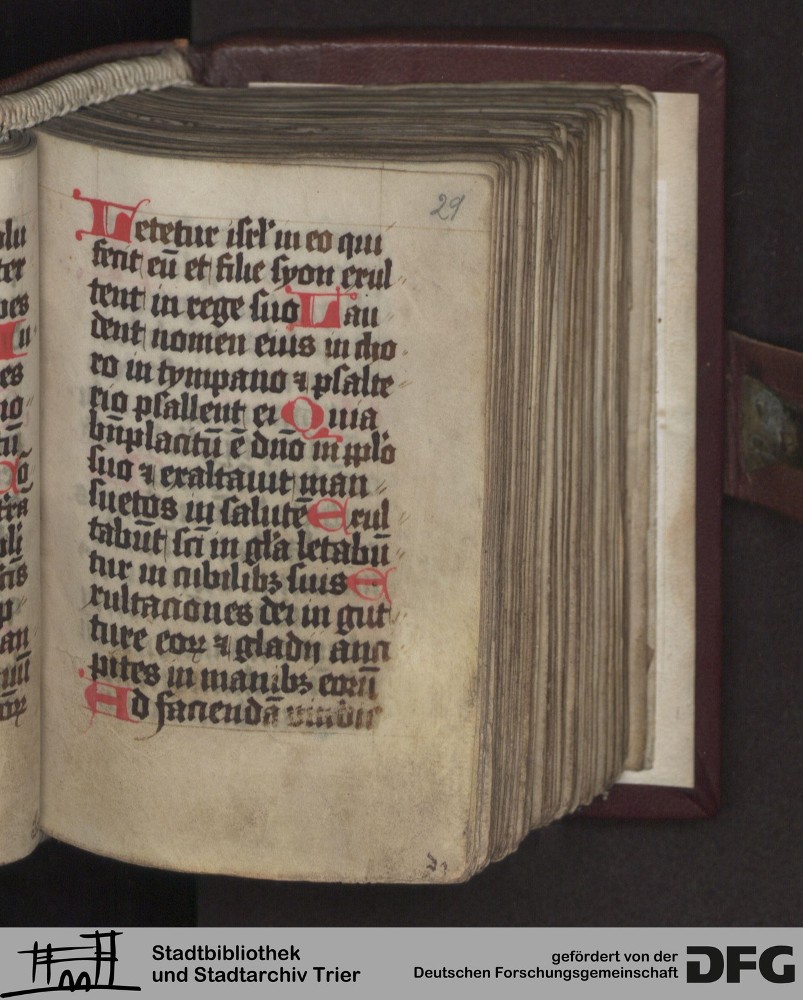 29
Letetur isrl' in eo qui
fecit eū et filie syon exul
tent in rege suo Lau
dent nomen eius in cho
ro in tympano ⁊ psalte
rio psallent ei Quia
bn̄placitū ē dn̄o in ppl'o
suo ⁊ exaltauit man
suetos in salutē Exul
tabūt sc̄i in gl'a letabū
tur in cubilibꝫ suis E
xultaciones dei in gut
ture eoꝝ ⁊ gladij anci
pites in manibꝫ eorū
Ad faciendā vindic
Stadtbibliothek
und Stadtarchiv Trier
gefördert von der
Deutschen Forschungsgemeinschaft
DFG